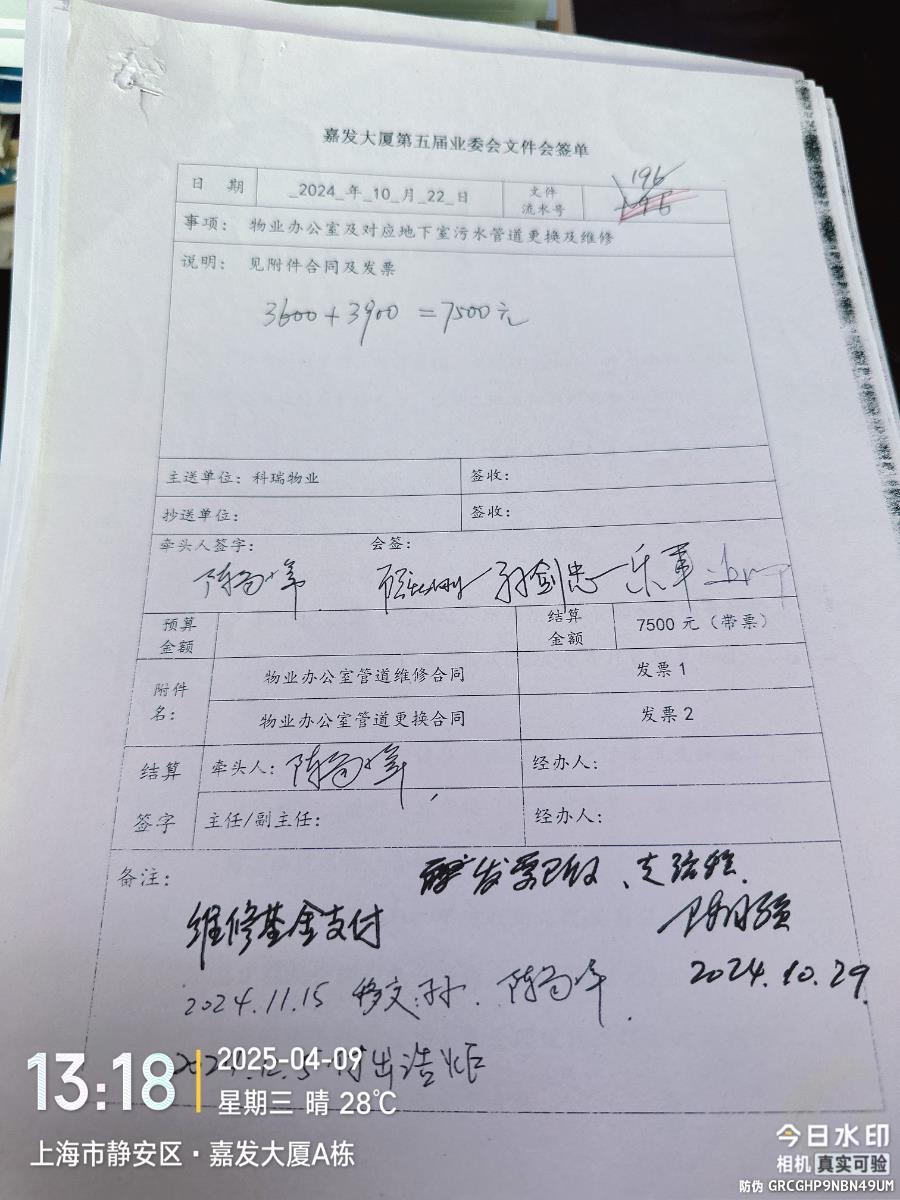 嘉发大厦第五届业委会文件会签单
日 期 _2024_年_10_月_22_日 文件流水号 196
事项: 物业办公室及对应地下室污水管道更换及维修
说明: 见附件合同及发票
3600+3900=7500元
主送单位: 科瑞物业 签收:
抄送单位: 签收:
牵头人签字: 会签:
孙剑忠 乐军
预算金额 结算金额 7500 元（带票）
附件名: 物业办公室管道维修合同 发票 1
物业办公室管道更换合同 发票 2
结算签字 牵头人: 经办人:
主任/副主任: 经办人:
备注:
发票已收
维修基金支付
2024.10.29.
2024.11.15 移交:孙.
13:18 2025-04-09
星期三 晴 28℃
上海市静安区·嘉发大厦A栋
今日水印
相机 真实可验
防伪 GRCGHP9NBN49UM